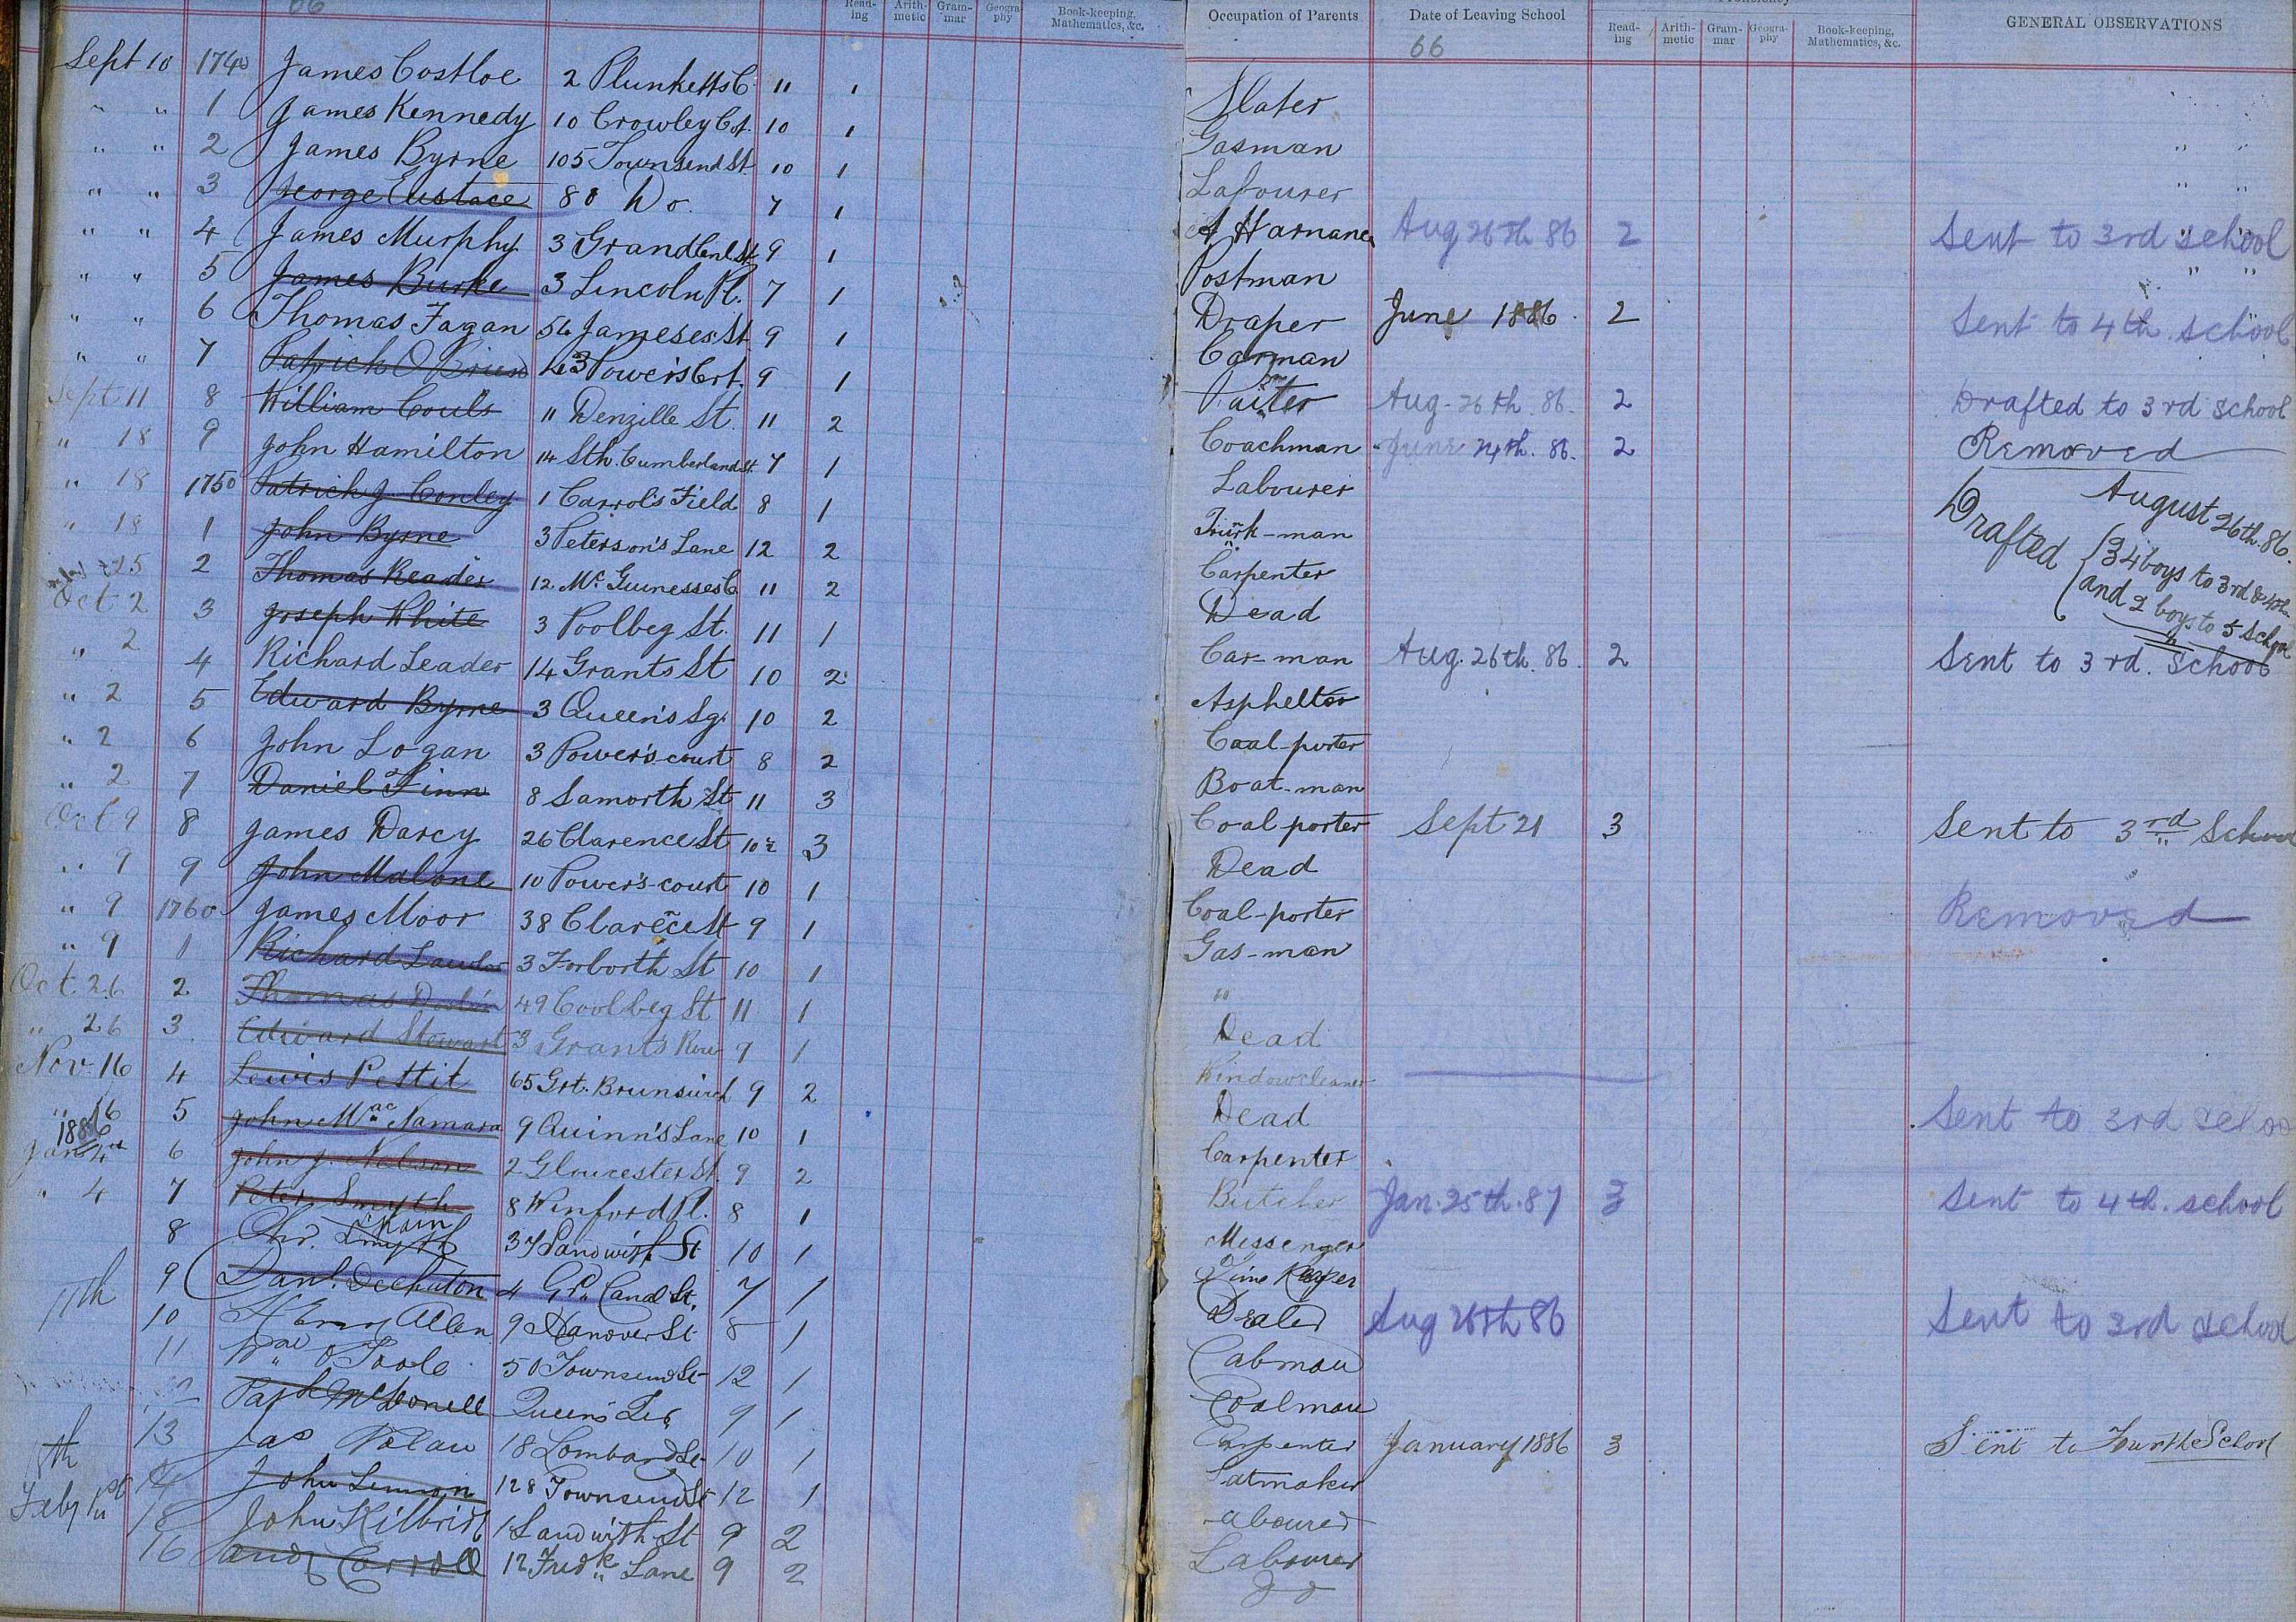 66
Read-ing Arith-metic Gram-mar Geogra-phy Book-keeping, Mathematics, &c.
Sept 10 1740 James Costloe 2 Plunketts C. 11 1
" " 1 James Kennedy 10 Crowley Ct. 10 1
" " 2 James Byrne 105 Townsend St. 10 1
" " 3 George Eustace 88 Do. 7 1
" " 4 James Murphy 3 Grand Canl St. 9 1
" " 5 James Burke 3 Lincoln Pl. 7 1
" " 6 Thomas Fagan 54 Jameses St. 9 1
" " 7 Patrick O Brien 43 Power's Crt. 9 1
Sept 11 8 William Couls 11 Denzille St. 11 2
" 18 9 John Hamilton 14 Sth. Cumberland St. 7 1
" 18 1750 Patrick J. Conley 1 Carrol's Field 8 1
" 18 1 John Byrne 3 Peterson's Lane 12 2
25 2 Thomas Reader 12 Mc Guinesses C 11 2
Oct 2 3 Joseph White 3 Poolbeg St. 11 1
" 2 4 Richard Leader 14 Grants St 10 2
" 2 5 Edward Byrne 3 Queen's Sq. 10 2
" 2 6 John Logan 3 Power's-court 8 2
" 2 7 Daniel Finn 8 Samorth St 11 3
Oct 9 8 James Darcy 26 Clarence St 10 3
" 9 9 John Malone 10 Power's-court 10 1
" 9 1760 James Moor 38 Clarece St 9 1
" 9 1 Richard Lawlor 3 Forborth St 10 1
Oct. 26 2 Thomas 49 Coolbeg St 11 1
" 26 3 Edward Stewart 3 Grants Row 9 1
Nov. 16 4 Lewis Pettit 65 Grt. Brunswick 9 2
" 16 5 John Mac Namara 9 Quinn's Lane 10 1
1886
Jan 4th 6 John J. Nelson 2 Gloucester St. 9 2
" 4 7 Peter Smyth 8 Winford Pl. 8 1
8 Chr. Smyth 37 Sandwith St 10 1
9 Danl. 4 Gd. Canal St. 7 1
11th 10 Henry Allen 9 Hanover St 8 1
11 Wm O'Toole 50 Townsend St 12 1
12 Patk McDonell Queens 9 1
13 Jas Nolan 18 Lombard St 10 1
14 John Lennon 128 Townsend St 12 1
Feby 1st John Kilbride 1 Sandwith St 9 2
16 Carroll 12 Fredk Lane 9 2
Occupation of Parents Date of Leaving School Read-ing Arith-metic Gram-mar Geogra-phy Book-keeping, Mathematics, &c. GENERAL OBSERVATIONS
66
Slater
Gasman " "
Labourer " "
Aug 26th 86 2 Sent to 3rd school
Postman " "
Draper June 1886. 2 Sent to 4th. school
Carman
Aug. 26th. 86. 2 Drafted to 3rd school
Coachman June 24th. 86. 2 Removed
Labourer August 26th. 86.
man Drafted 34 boys to 3rd & 4th
Carpenter and 2 boys to 5 School
Dead
Car-man Aug. 26th. 86. 2 Sent to 3rd. School
Asphelter
Coal-porter
Boat-man
Coal porter Sept 21 3 Sent to 3rd School
Dead
Coal-porter Removed
Gas-man
"
Dead
Windowcleaner
Dead Sent to 3rd school
Carpenter
Butcher Jan. 25th. 87 3 Sent to 4th. school
Messenger
Time Keeper
Dealer Aug 26th 86 Sent to 3rd school
Cabman
Coalman
Carpenter January 1886 3 Sent to Fourth School
atmaker
abourer
Labourer